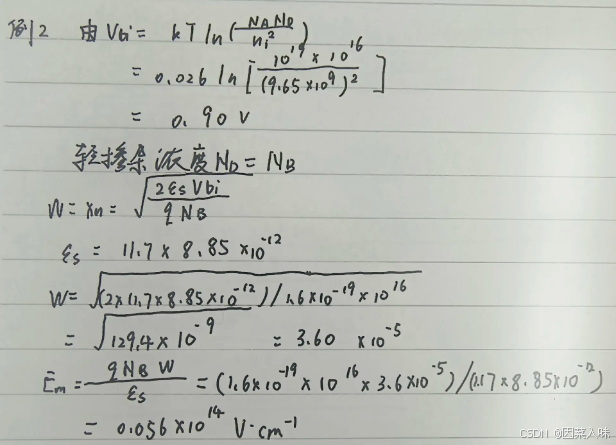 例2 由Vbi = kT ln(NAND/ni²)
= 0.026 ln[10¹⁹×10¹⁶/(9.65×10⁹)²]
= 0.90 V
轻掺杂浓度ND=NB
W = xn = √(2εsVbi/qNB)
εs = 11.7 × 8.85 ×10⁻¹²
W = √(2×11.7×8.85×10⁻¹²)/1.6×10⁻¹⁹×10¹⁶
= √129.4×10⁻⁹ = 3.60 ×10⁻⁵
Em = qNBW/εs = (1.6×10⁻¹⁹×10¹⁶×3.6×10⁻⁵)/(11.7×8.85×10⁻¹²)
= 0.056×10¹⁴ V·cm⁻¹
CSDN @因菜入味